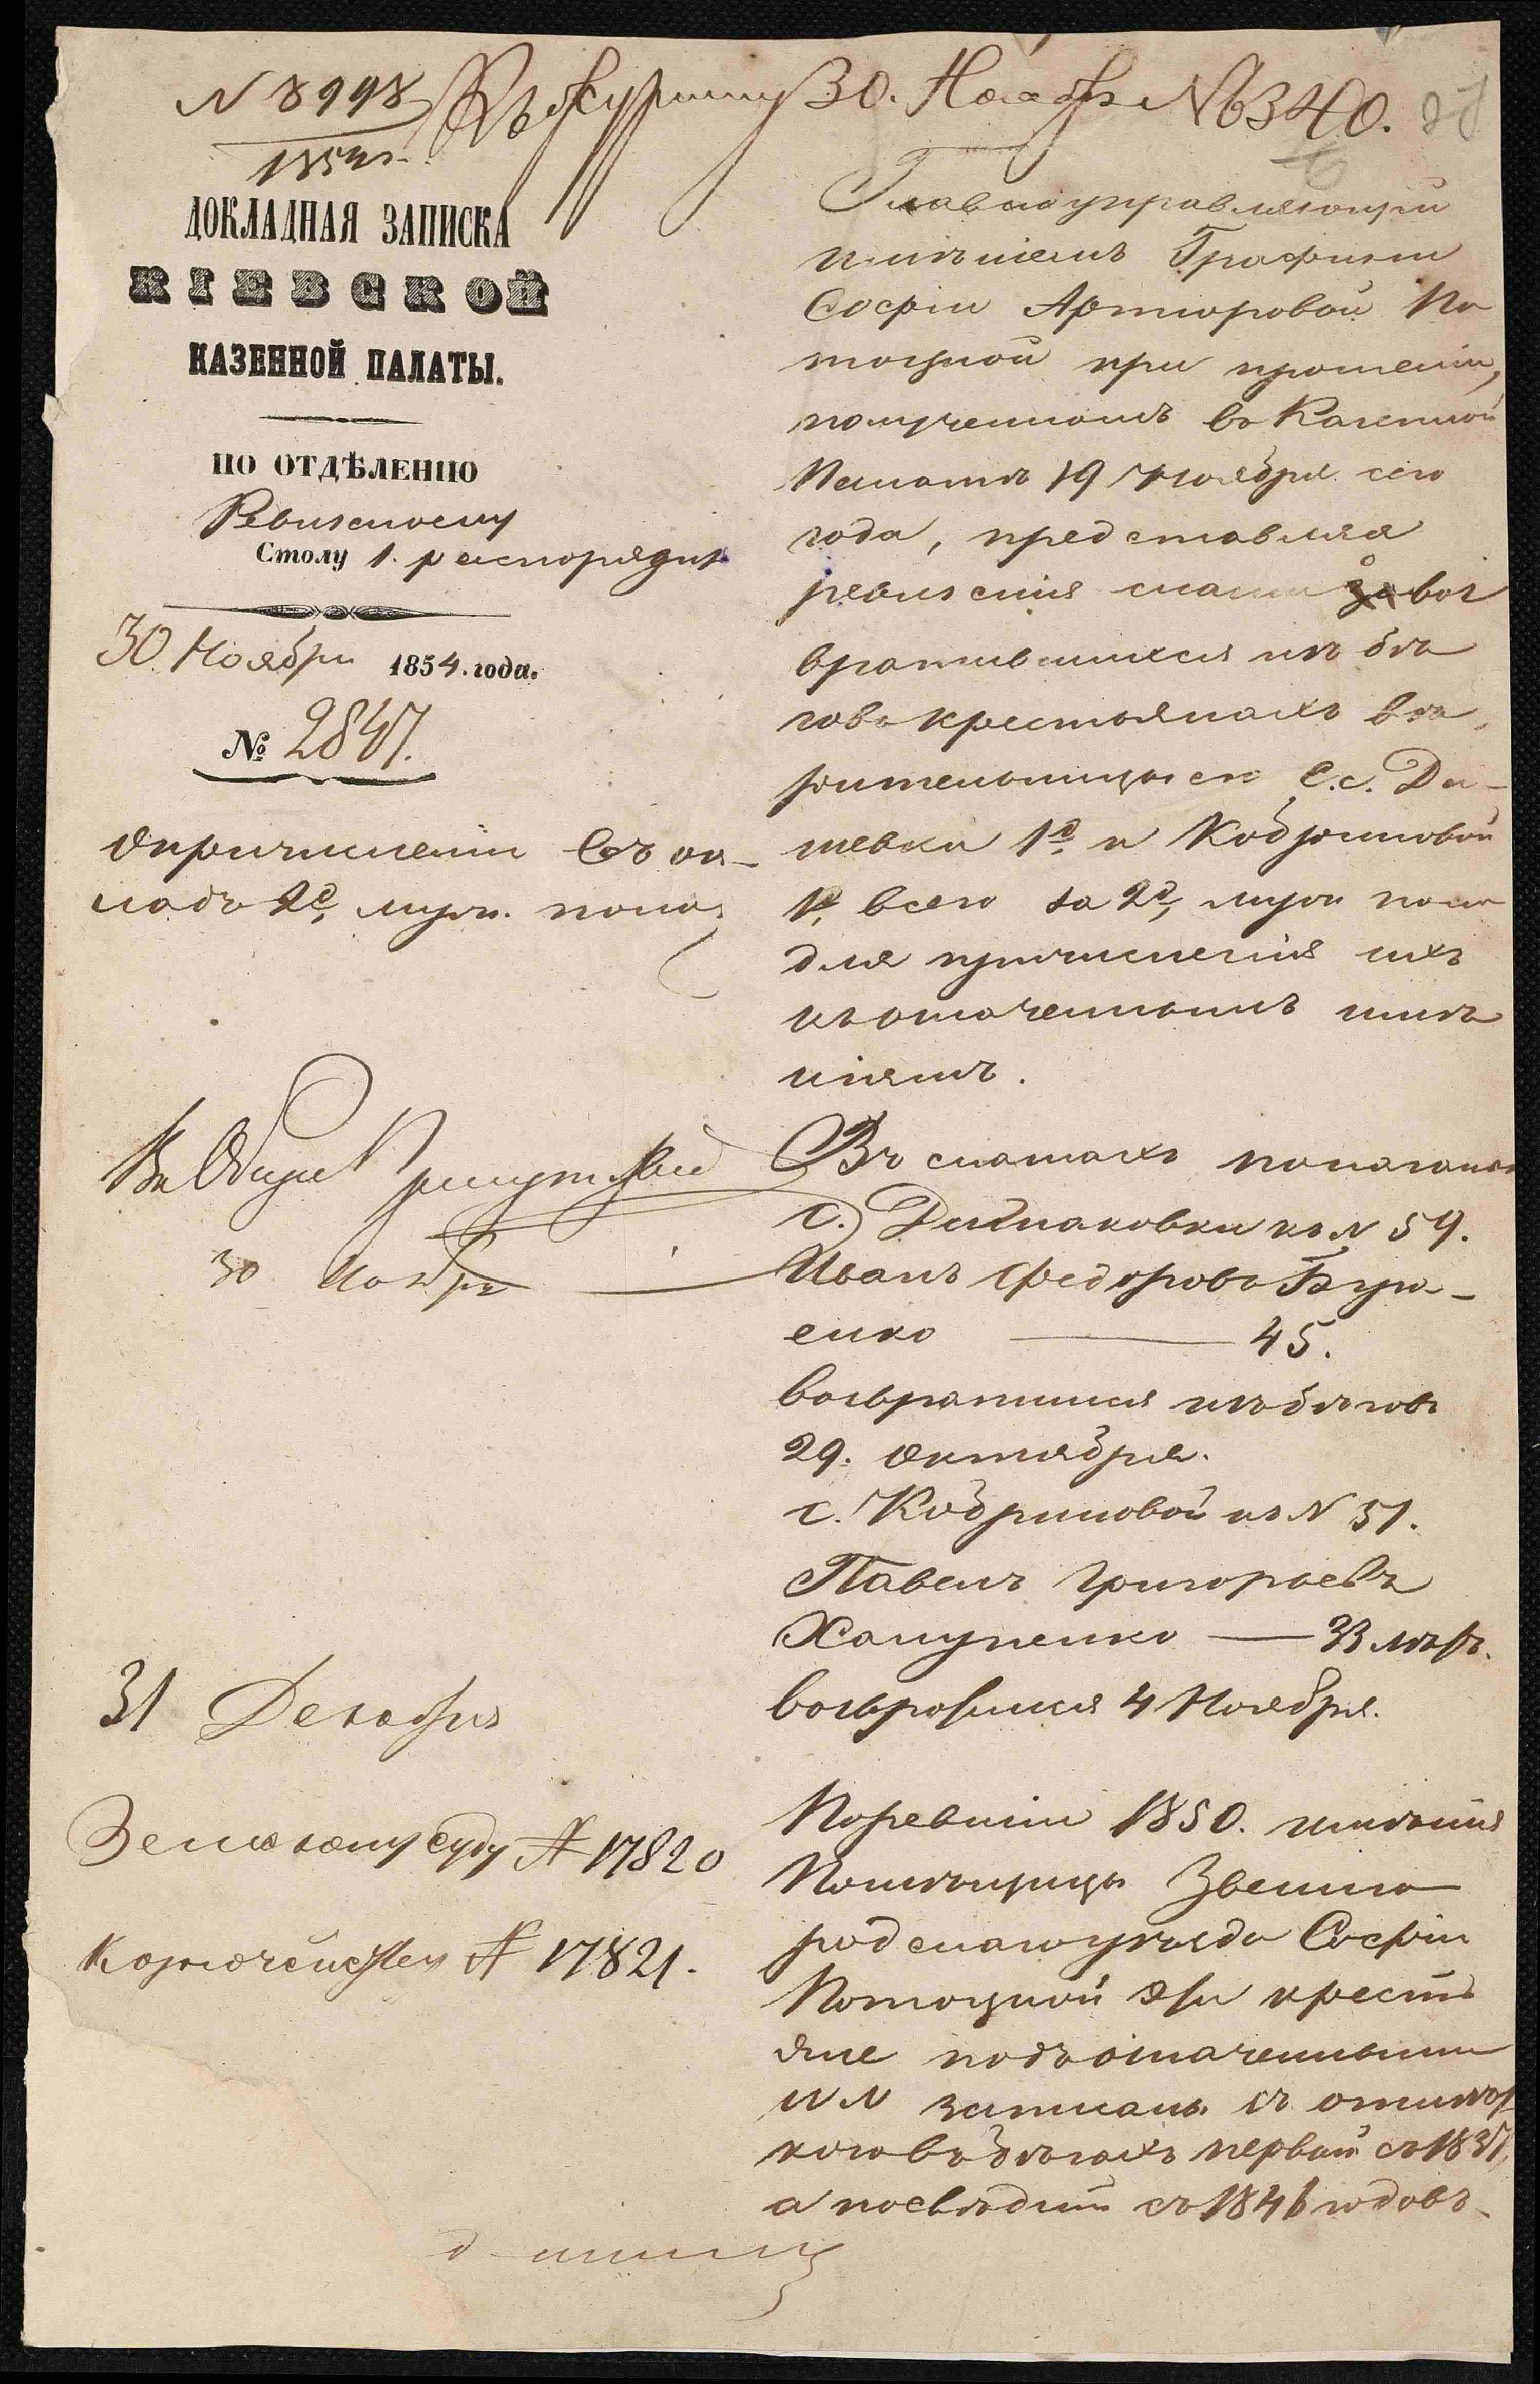 N 8998
1854 г.
Къ журналу 30. Ноября № 6340.
ДОКЛАДНАЯ ЗАПИСКА
КІЕВСКОЙ
КАЗЕННОЙ ПАЛАТЫ.
ПО ОТДѢЛЕНІЮ
Ревизскому
Столу 1. распорядит
30 Ноября 1854. года.
№ 2847.
О причисленіи въ ок-
ладъ 2д. муж. пола
30 Ноября
31 Декабря
Земскому суду № 17820
Казначейству № 17821.
Главноуправляющій
имѣніемъ Графини
Софіи Артюровой По
тоцкой при прошеніи,
полученномъ въ Казенной
Палатѣ 19 Ноября сего
года, представляя
ревизскія сказки о воз
вратившихся изъ бѣ
говъ крестьянахъ вѣ
рительницы ея С.с. Да-
шевки 1д. и Кобриновой
1д. всего за 2д. муж. пола
для причисленія ихъ
къ означеннымъ имѣ
ніямъ.
Въ сказкахъ показаны
с. къ N 59.
Иванъ Федоровъ
енко — 45.
возвратился изъ бѣговъ
29. Октября.
с. Кобриновой къ N 51.
Павелъ Григорьевъ
— 33 лѣтъ.
возвратился 4 Ноября.
По ревизіи 1850. имѣнія
Помѣщицы Звениго
родскаго уѣзда Софіи
Потоцкой эти кресть
яне подъ означенными
N N записаны съ отмѣт
кою въ бѣгахъ первый съ 1837,
а послѣдній съ 1846 годовъ